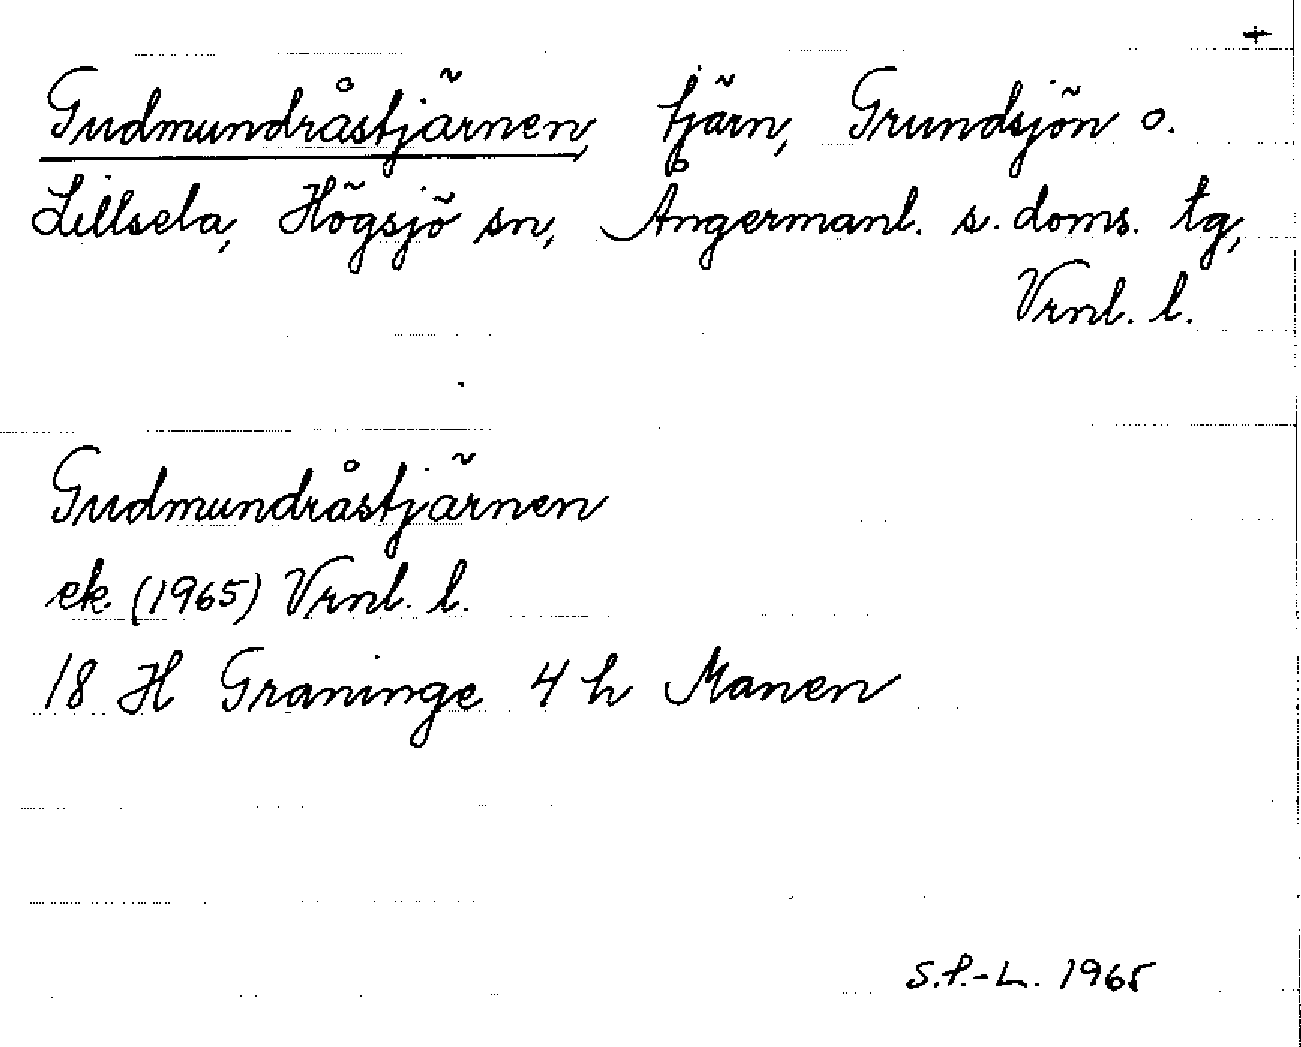 +
Gudmundråstjärnen, tjärn, Grundsjön o.
Lillsela, Högsjö sn, Ångermanl. s. doms. tg,
Vrnl. l.
Gudmundråstjärnen
ek. (1965) Vrnl. l.
18 H Graninge 4 h Manen
S.P.-L. 1965